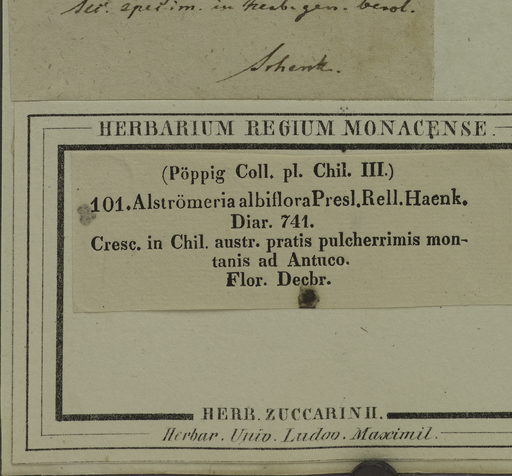 sec. specim. in herb. gen. berol.
Schenk.
HERBARIUM REGIUM MONACENSE.
(Pöppig Coll. pl. Chil. III.)
101. Alströmeria albiflora Presl. Rell. Haenk.
Diar. 741.
Cresc. in Chil. austr. pratis pulcherrimis mon-
tanis ad Antuco.
Flor. Decbr.
HERB. ZUCCARINII.
Herbar. Univ. Ludov. Maximil.